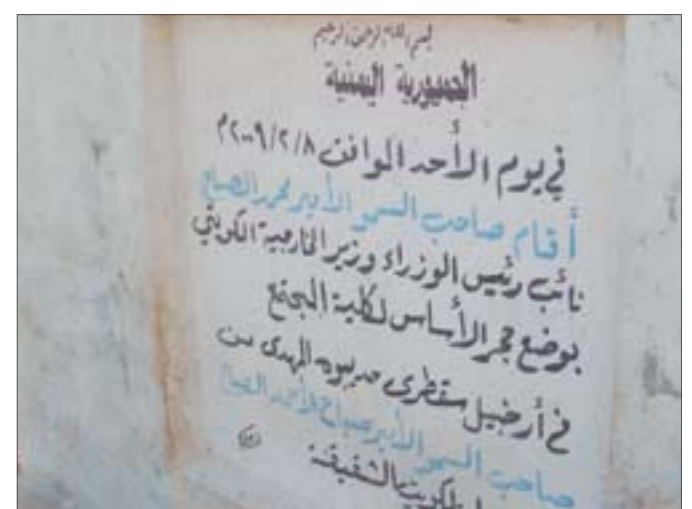 بسم الله الرحمن الرحيم
الجمهورية اليمنية
في يوم الأحد الموافق ٢٠٠٩/٢/٨م
أقام صاحب السمو الأمير محمد الصباح
نائب رئيس الوزراء وزير الخارجية الكويتي
بوضع حجر الأساس لكلية المجتمع
في أرخبيل سقطرى المهدى من
صاحب السمو الأمير صباح الأحمد الصباح
الكويت الشقيقة